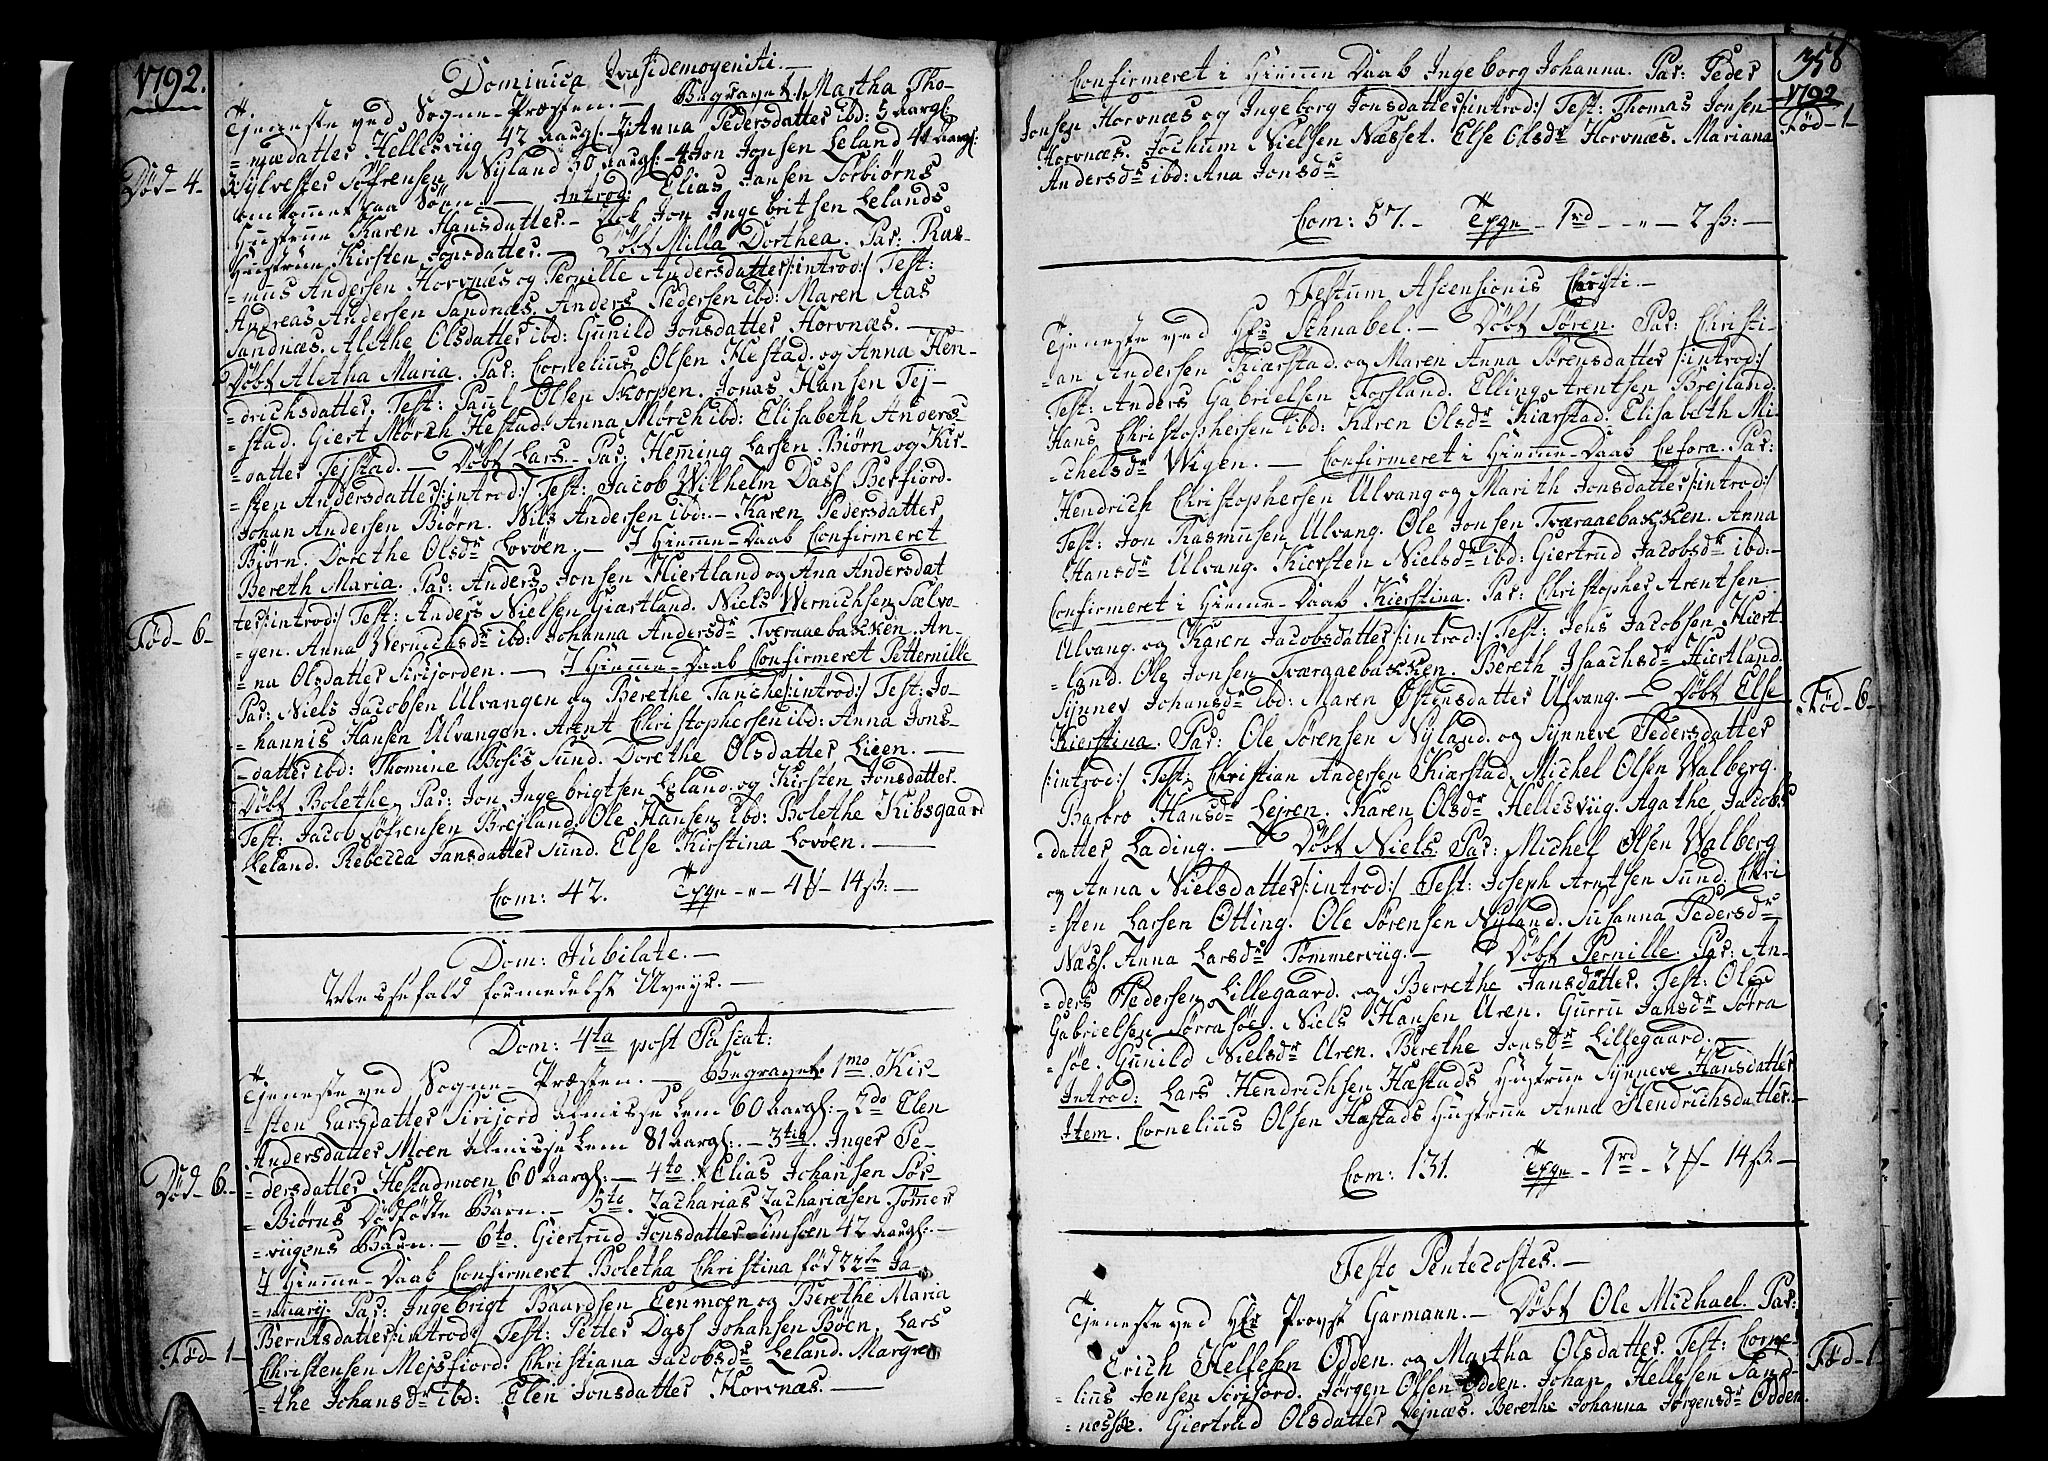 1792.
Dominica Qvasimogeniti.—
Tjeneste ved Sogne-Præsten.— Begravet. 1. Martha Tho-
=mædatter Hellesviig 42 aargl: 2. Anna Pedersdatter ibd: 5 aargl.
Død-4- Sylvester Söfrensen Nyland 30 aargl:- 4. Jon Jonsen Leland 41 aargl:
omkommet paa Söen.— Introd: Elias Jansen Sorbiørns
Hustrue Karen Hansdatter.- Nok Jon Ingebritsen Lelands
Hustrue Kirsten Jonsdatter.— Döbt Milla Dorthea. Par: Ras-
=mus Andersen Horvnæs og Pernille Andersdatter/:introd:/ Test:
Andreas Andersen Sandnæs. Anders Pedersen ibd: Maren Aas
Sandnæs. Alethe Olsdatter ibd: Gunild Jonsdatter Horvnæs.—
Döbt Aletha Maria. Par: Cornelius Olsen Hestad. og Anna Hen-
=drichsdatter. Test: Paul Olsen Skorpen. Jonas Hansen Tej-
=stad. Giert Mörch Hestad. Anna Mörch ibd: Elisabeth Anders
=datter Tejstad.— Döbt Lars.- Par: Hemming Larsen Biørn og Kir-
=sten Andersdatter/:introd:/ Test: Jacob Wilhelm Dass Berfiord.
Johan Andersen Biørn. Nils Andersen ibd:- Karen Pedersdatter
Biörn. Dorethe Olsdr Lovöen.— I Hiemme-Daab Confirmeret
Bereth Maria. Par: Anders Jonsen Hiertland og Ana Andersdat
Fød-6- ter/:introd:/ Test: Anders Nielsen Giertland. Niels Wernichsen Sælvo-
=gen. Anna Wernichsdr ibd: Johanna Andersdr Tveraaebakken. An-
=na Olsdatter Sirifjorden.— I Hiemme-Daab Confirmeret Petternille
Par: Niels Jacobsen Ulvangen og Berethe Tanche/:introd:/ Test: Jo-
=hannis Hansen Ulvangen. Arent Christophersen ibd: Anna Jons-
=datter ibd: Thomine Bosis Sund. Dorethe Olsdatter Lieen.—
Döbt Bolethe. Par: Jon Ingebrigtsen Leland. og Kirsten Jonsdatter.
Test: Jacob Söfrensen Brejland. Ole Hansen ibd: Bolethe Kibsgaard
Leland. Rebecca Jansdatter Sund. Else Kirstina Lovöen.—
Com: 42. Tegn - „ - 4 - 14 ß:—
Dom: Jubilate.—
Messefald formedelst Uveyr.—
Dom: 4ta post Pascat:
Tjeneste ved Sogne-Præsten.— Begravet: 1mo. Kir
=sten Larsdatter Sirifjord almisse Lem 60 aargl:- 2do Elen
Andersdatter Moen almisse Lem 81 aargl:- 3tia. Inger Pe-
Død-6- =dersdatter Hestadmoen 60 aargl:- 4to Elias Johansen Sör
=Biørns Dødfødte Barn.— 5to. Zacharias Zachariasen Tömer
=viigens Barn.— 6to. Giertrud Jonsdatter Simsöen 42 aargl:—
I Hiemme-Daab Confirmeret Boletha Christina fød 22de Ja-
=nuarij. Par: Ingebrigt Baardsen Eenmoen og Berethe Maria
Berntsdatter/:introd:/ Test: Petter Dass Johansen Böen. Lars
Fød-1- Christensen Mejsfiord. Christiana Jacobsdr Leland. Margre
=the Johansdr ibd: Elen Jonsdatter Horvnæs.—
358
1792
Confirmeret i Hiemme Daab Ingeborg Johanna. Par: Peder
Fød-1- Jonsen Horvnæs og Ingeborg Jonsdatter/:introd:/ Test: Thomas Jonsen
Horvnæs. Jochum Nielsen Næsset. Else Olsdr Horvnæs. Mariana
Andersdr ibd: Ana Jonsdr
Com: 57.- Tegn - 1rd - „ - 2 ß:—
Festum Ascensionis Christi.—
Tjeneste ved Hr Schnabel.— Döbt Sören. Par: Christi-
=an Andersen Kiærstad. og Maren Anna Sörensdatter/:introd:/
Test: Anders Gabrielsen Forsland. Elling Arentsen Brejland.
Hans Christophersen ibd: Karen Olsdr Kiærstad. Elisabeth Mi-
=chelsdr Wigen.— Confirmeret i Hiemme-Daab Cefora. Par:
Hendrich Christophersen Ulvang og Marith Jonsdatter/:introd:/
Test: Jon Rasmusen Ulvang. Ole Jonsen Tværaaebakken. Anna
Hansdr Ulvang. Kiersten Nielsdr ibd: Giertrud Jacobsdr ibd:-
Confirmeret i Hiemme-Daab Kierstina. Par: Christopher Arentsen
Ulvang. og Karen Jacobsdatter/:introd:/ Test: Jens Jacobsen Hiert-
=land. Ole Jonsen Tværaaebakken. Bereth Isaachsdr Hiertland.
Fød-6- Synnev Johansdr ibd: Maren Östensdatter Ulvang.— Döbt Else
Kierstina. Par: Ole Sörensen Nyland. og Synneve Pedersdatter
/:introd:/ Test: Christian Andersen Kiærstad. Michel Olsen Walberg.
Barbro Hansdr Lejren. Karen Olsdr Hellesviig. Agathe Jacobs
=datter Lading.— Döbt Niels. Par: Michel Olsen Walberg
og Anna Nielsdatter/:introd:/ Test: Joseph Arntsen Sund. Chri
=sten Larsen Otting. Ole Sörensen Nyland. Susanna Pedersdr
Næss. Anna Larsdr Tömmerviig.— Döbt Pernille. Par: An-
=ders Pedersen Lillegaard. og Berrethe Jansdatter. Test: Ole
Gabrielsen Sörra söe. Niels Hansen Uren. Gurru Jansdr Sörra
söe. Gunild Nielsdr Uren. Berethe Jonsdr Lillegaard.—
Introd: Lars Hendrichsen Hæstads Hustrue Synneve Hansdatter
Item. Cornelius Olsen Hæstads Hustrue Anna Hendrichsdatter.-
Com: 131. Tegn - 1rd - 2 - 14 ß.—
Festo Pentecostes.—
Tjeneste ved Hr Provst Garmann.— Döbt Ole Michael. Par:
Fød-1- Erich Hellesen Odden. og Martha Olsdatter. Test: Corne-
=lius Jensen Sörifjord. Jörgen Olsen Odden. Johan Hellesen Sand-
=nessöe. Giertrud Olsdatter Lejnæs. Berethe Johanna Jörgensdr Odden.